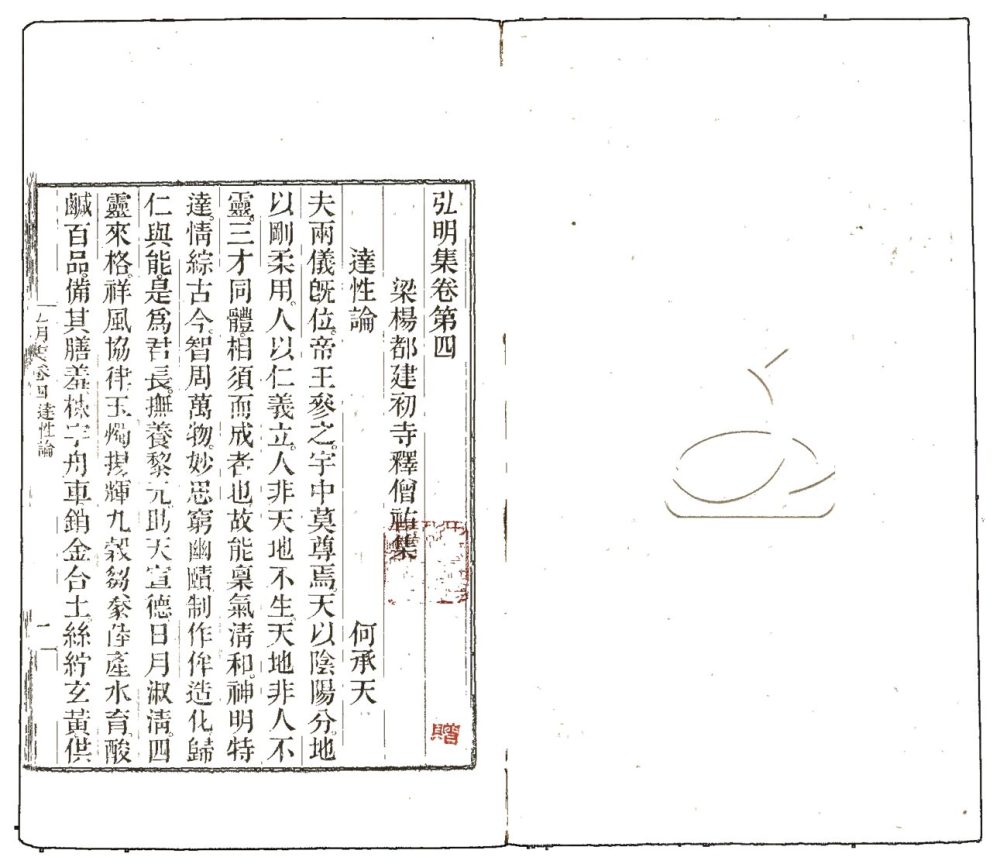 弘明集卷第四
梁楊都建初寺釋僧祐集
達性論 何承天
夫兩儀旣位。帝王參之。宇中莫尊焉。天以陰陽分。地
以剛柔用。人以仁義立。人非天地不生。天地非人不
靈。三才同體。相須而成者也。故能稟氣淸和。神明特
達。情綜古今。智周萬物。妙思窮幽賾。制作侔造化。歸
仁與能。是爲君長。撫養黎元。助天宣德。日月淑淸。四
靈來格。祥風協律。玉燭揚輝。九穀芻豢。陸產水育。酸
鹹百品。備其膳羞。棟宇舟車。銷金合土。絲紵玄黃。供
卷四 達性論 一
贈